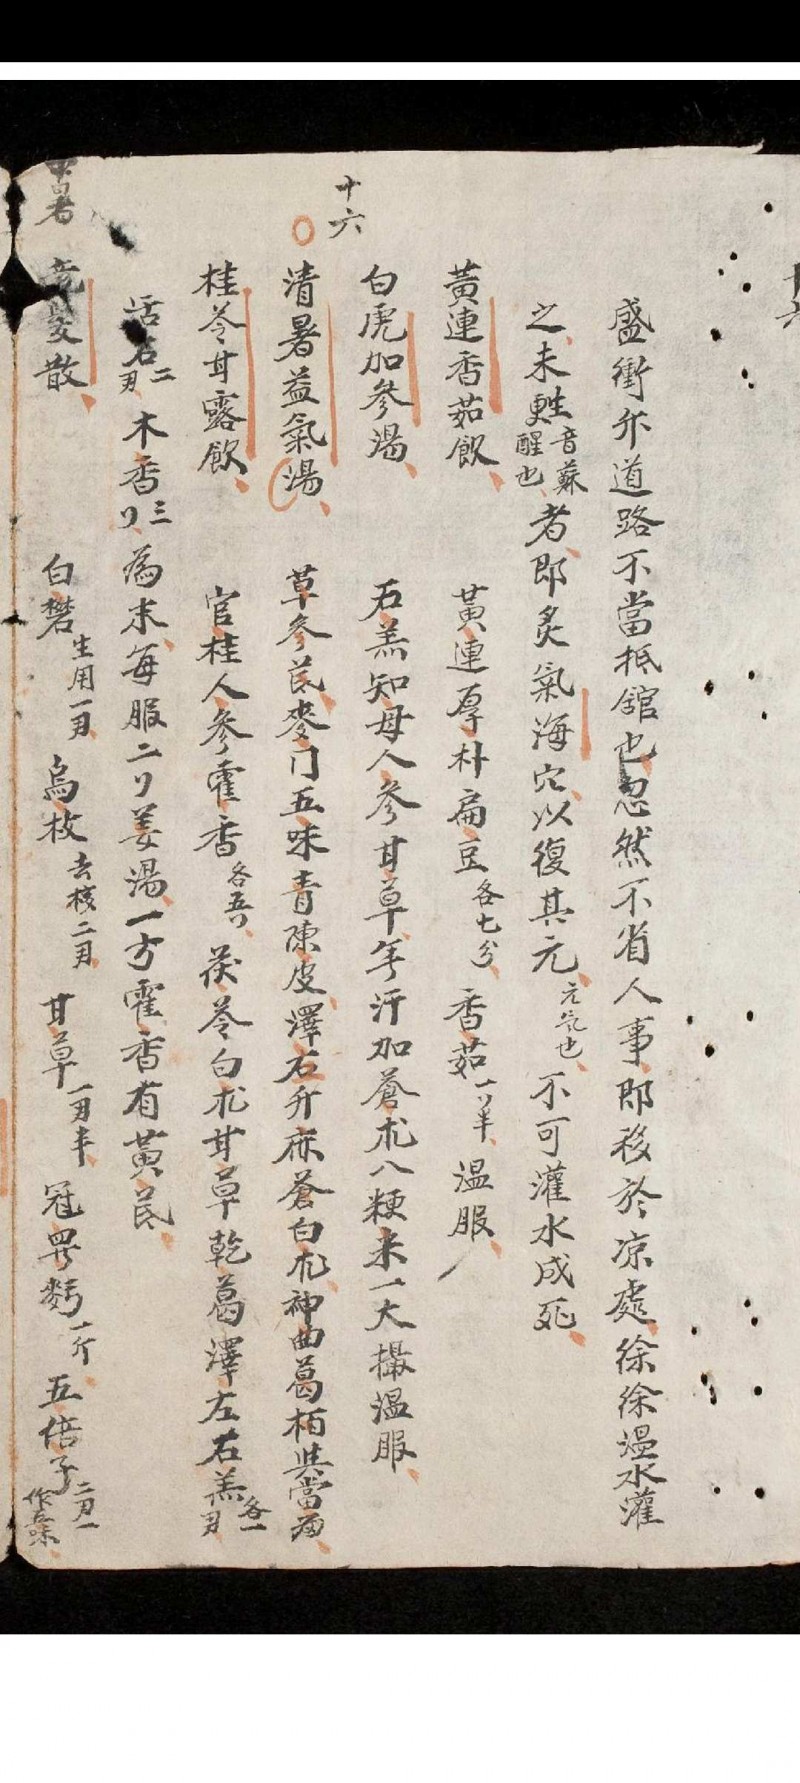 盛衝斥道路不當抵舘也忽然不省人事即移於凉處徐徐温水灌
之未甦音蘇醒也者即炙氣海穴以復其元元気也不可灌水成死
黃連香茹飲 黃連厚朴扁豆各七分香茹半温服
十六
白虎加參湯 石羔知母人參甘草年汗加蒼朮八粳米一大撮温服
清暑益氣湯 草參芪麥门五味青陳皮澤右升麻蒼白朮神曲葛栢當
桂苓甘露飲 官桂人參霍香各五茯苓白朮甘草乾葛澤左石羔各一
活石二 木香三為末每服二姜湯一方霍香有黃芪
散 白礬生用一烏枚去核二甘草一半冠一斤五倍子